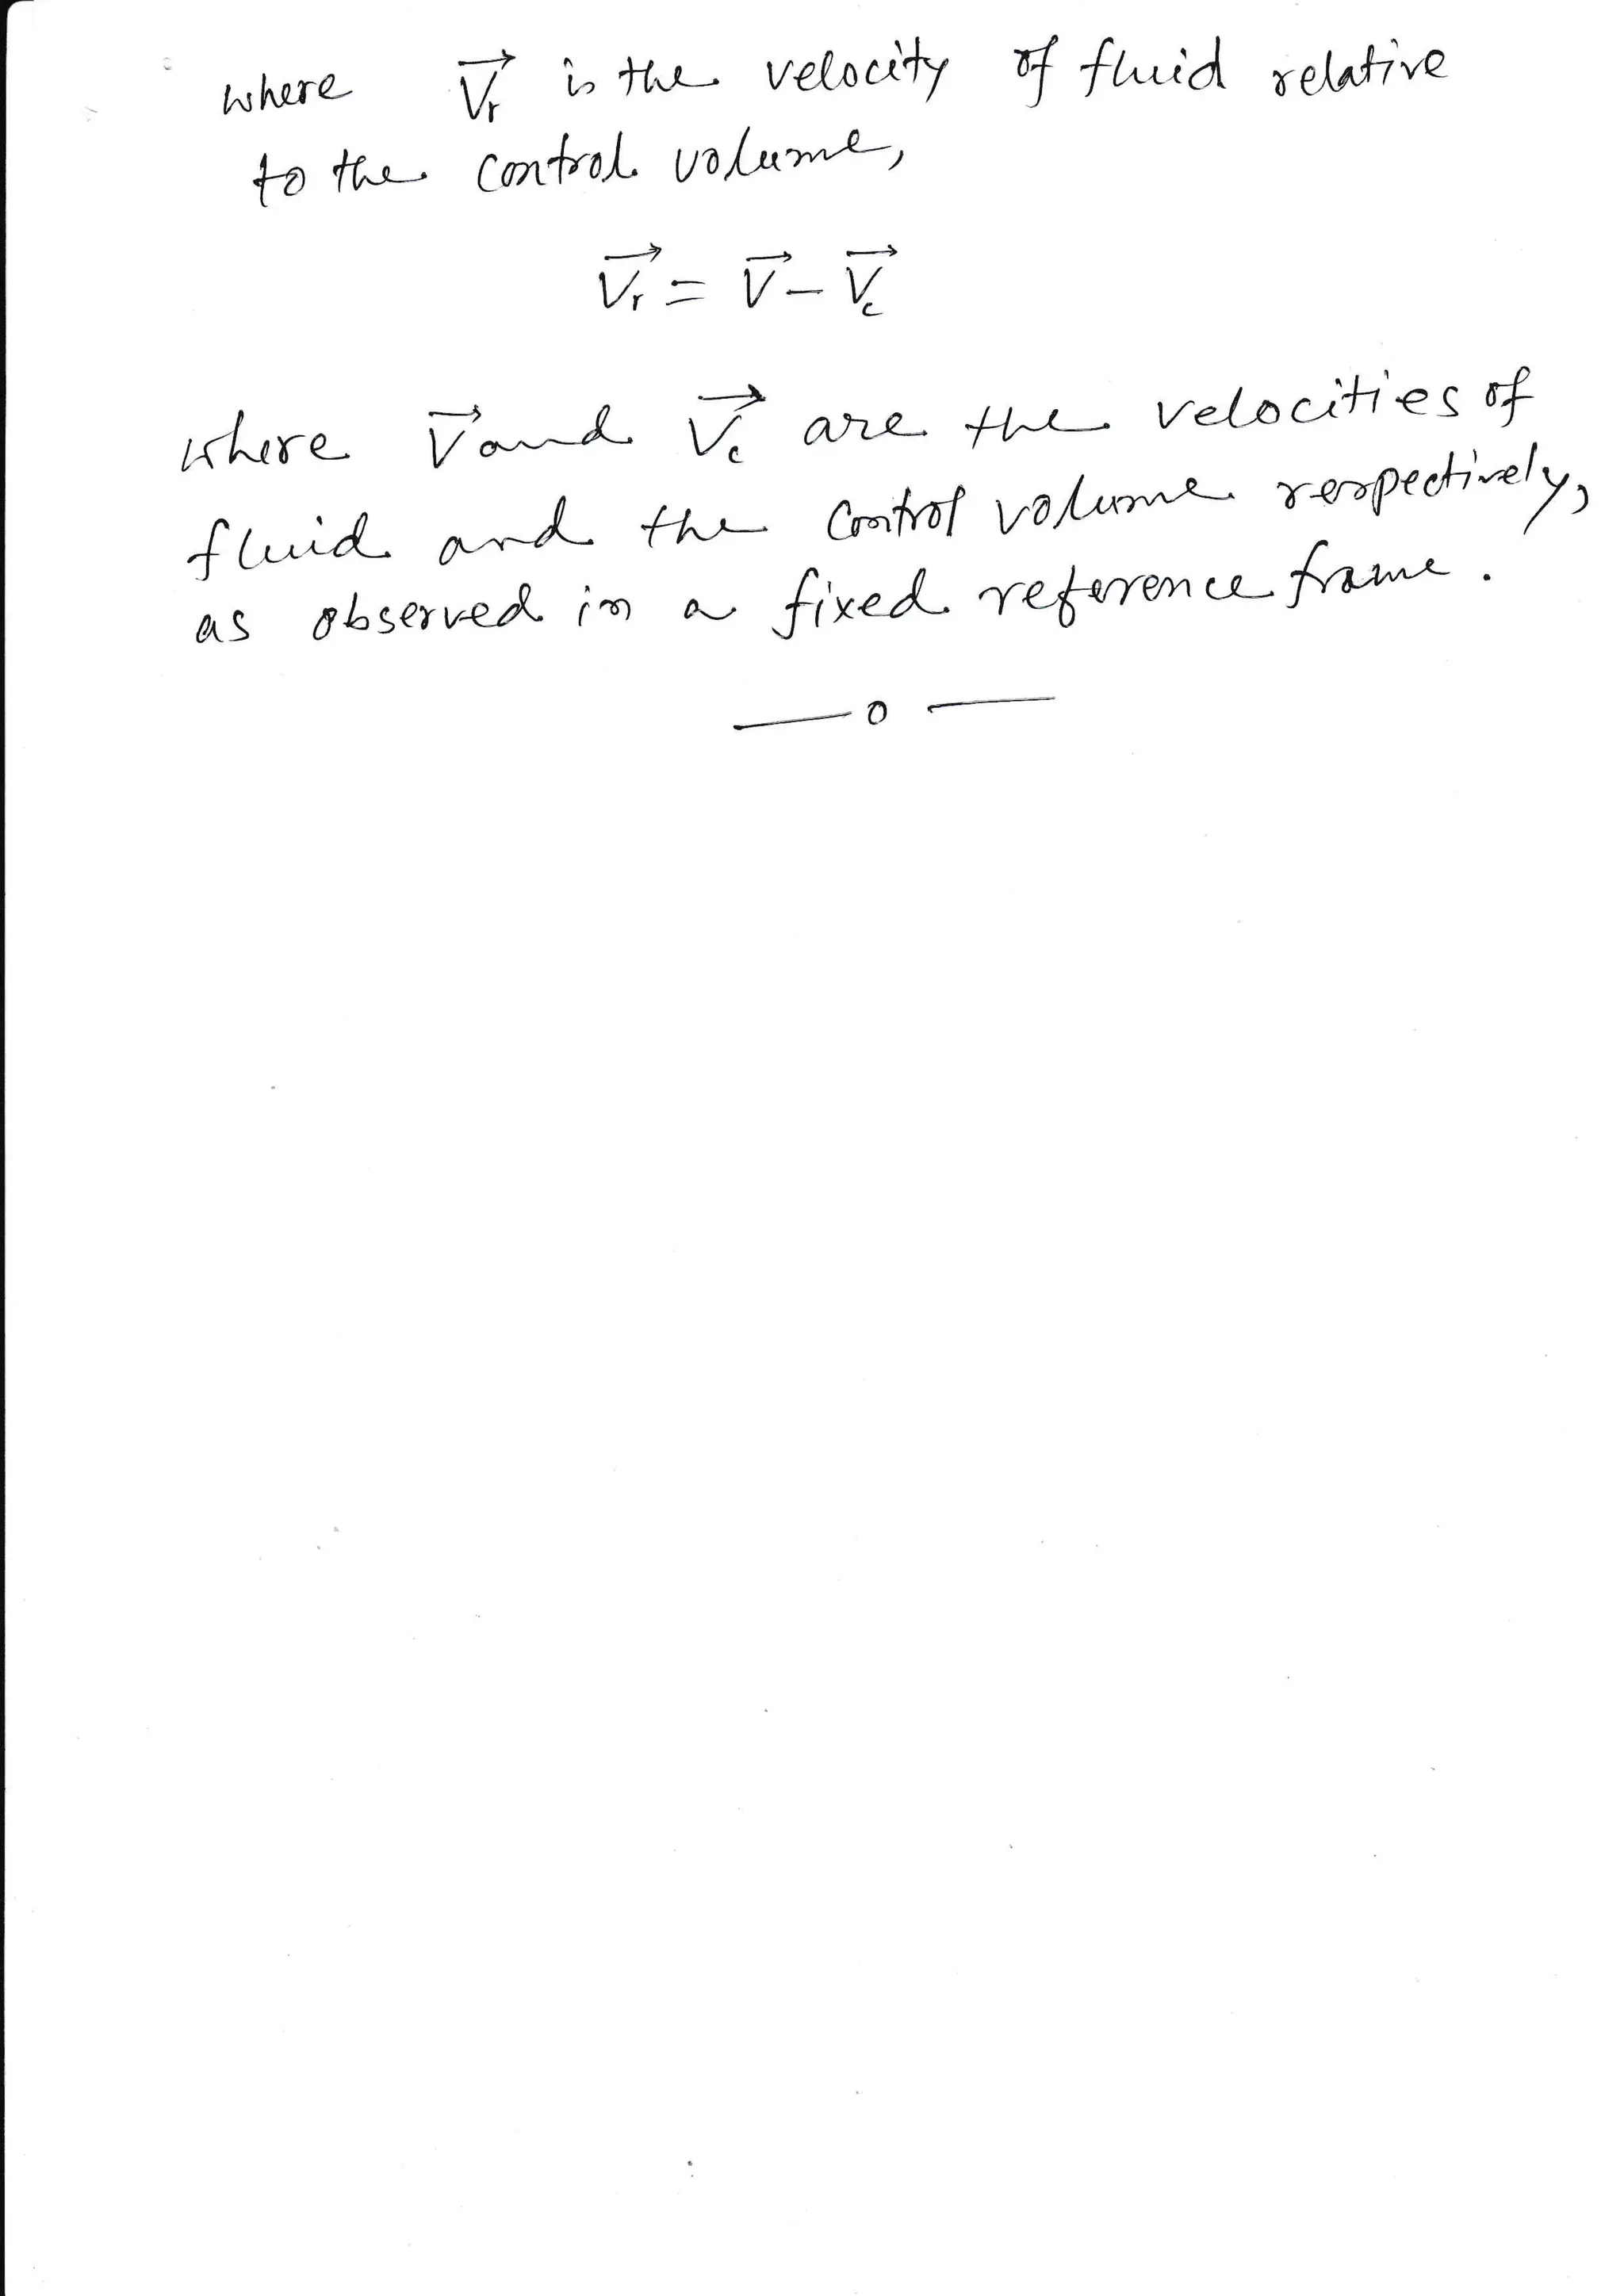 where V⃗r is the velocity of fluid relative
to the control volume,
V⃗r = V⃗ – V⃗c
where V⃗ and V⃗c are the velocities of
fluid and the control volume respectively,
as observed in a fixed reference frame.
— o —